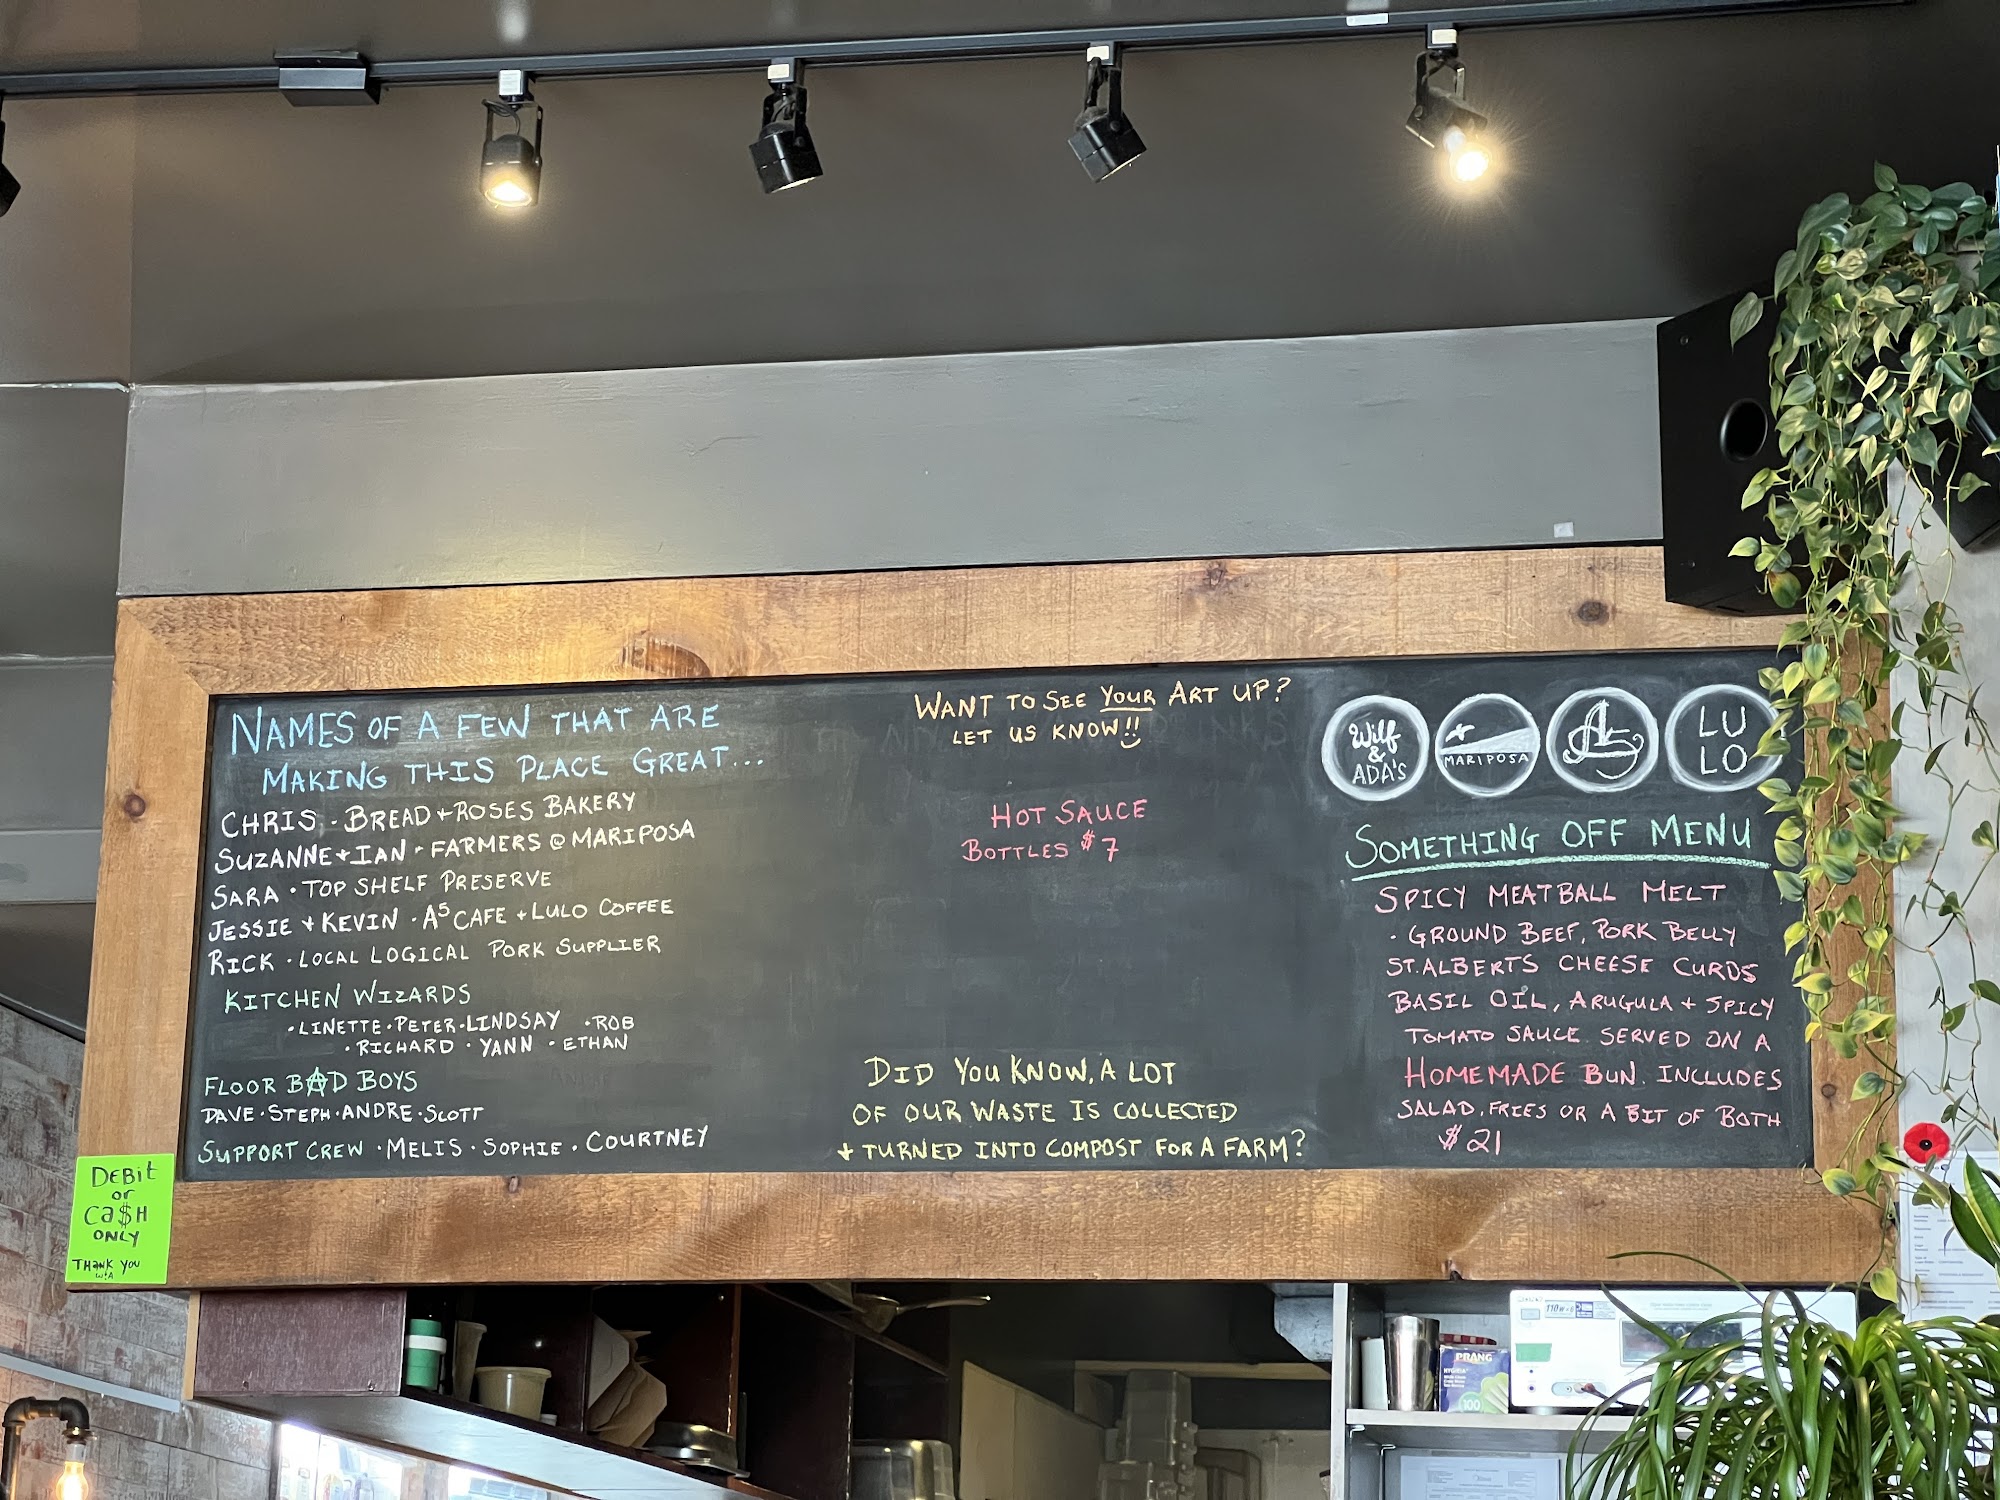 NAMES OF A FEW THAT ARE
MAKING THIS PLACE GREAT...
CHRIS · BREAD + ROSES BAKERY
SUZANNE + IAN · FARMERS @ MARIPOSA
SARA · TOP SHELF PRESERVE
JESSIE + KEVIN · A5 CAFE + LULO COFFEE
RICK · LOCAL LOGICAL PORK SUPPLIER
KITCHEN WIZARDS
· LINETTE · PETER · LINDSAY · ROB
· RICHARD · YANN · ETHAN
FLOOR BAD BOYS
DAVE · STEPH · ANDRE · SCOTT
SUPPORT CREW · MELIS · SOPHIE · COURTNEY
WANT TO SEE YOUR ART UP?
LET US KNOW!!
HOT SAUCE
BOTTLES $7
DID YOU KNOW, A LOT
OF OUR WASTE IS COLLECTED
+ TURNED INTO COMPOST FOR A FARM?
Wilf
&
ADA'S
MARIPOSA
LU
LO
SOMETHING OFF MENU
SPICY MEATBALL MELT
· GROUND BEEF, PORK BELLY
ST. ALBERTS CHEESE CURDS
BASIL OIL, ARUGULA + SPICY
TOMATO SAUCE. SERVED ON A
HOMEMADE BUN. INCLUDES
SALAD, FRIES OR A BIT OF BOTH
$21
DEBit
or
Ca$H
ONLY
THaNK YOU
W+A
110W
PRANG
100